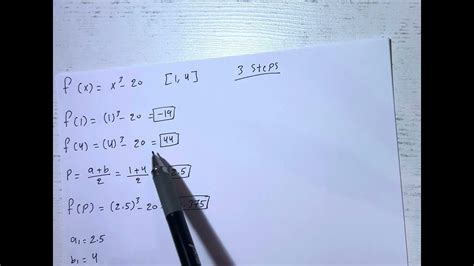 f(x) = x³ - 20 [1,4] 3 Steps
f(1) = (1)³ - 20 = -19
f(4) = (4)³ - 20 = 44
P = a+b/2 = 1+4/2 = 2.5
f(P) = (2.5)³ - 20 =
a₁ = 2.5
b₁ = 4